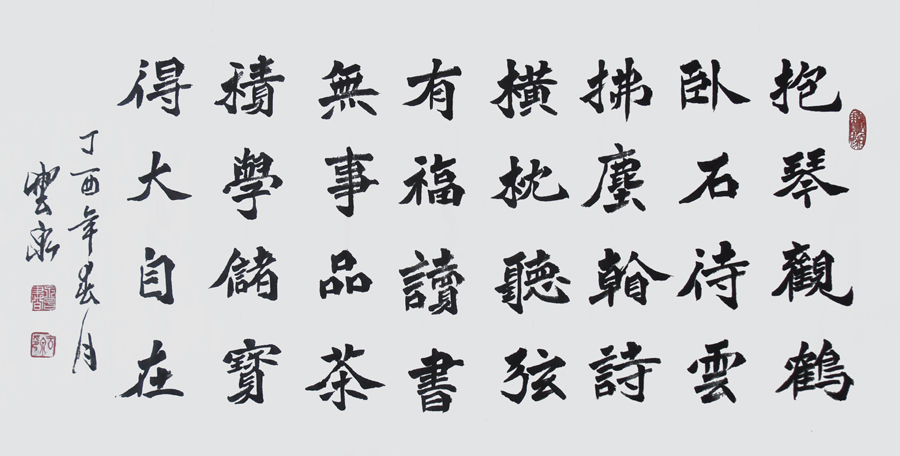 抱琴觀鶴
臥石待雲
拂塵翰詩
橫枕聽弦
有福讀書
無事品茶
積學儲寶
得大自在
丁酉年春月
雲泉